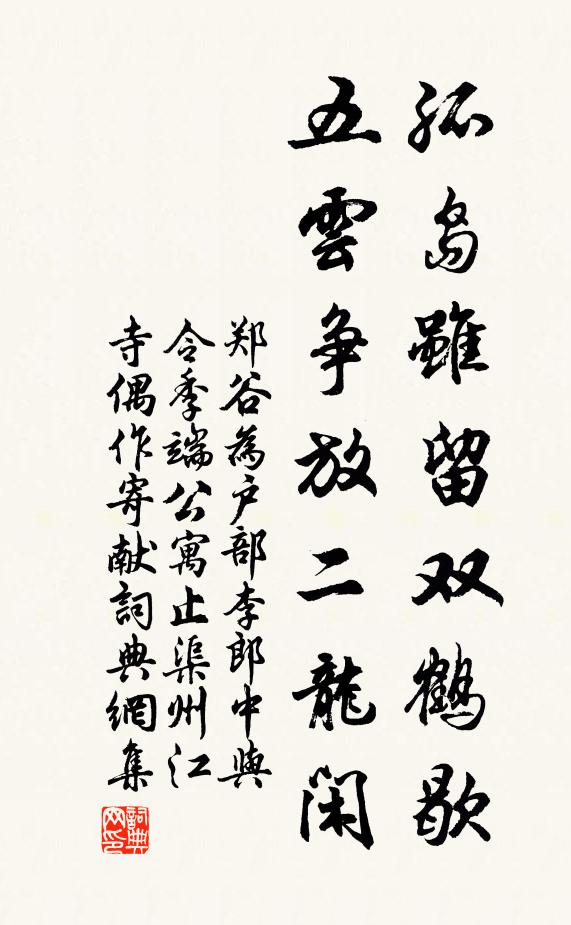 孤島雖留双鶴歇
五雲争放二龍閑
郑谷為户部李郎中與
令季端公寓止渠州江
寺偶作寄献詞典網集
詞典網印